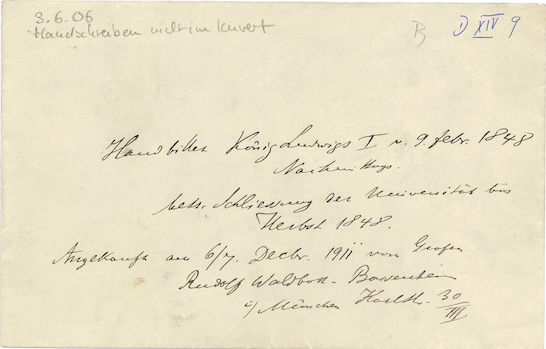 3.6.06
Handschreiben nicht im Kuvert
B
D XIV 9
Handbillet König Ludwigs I v. 9. febr. 1848
Nachmittags.
betr. Schliessung der Universität bis
Herbst 1848.
Angekauft am 6/7. Decbr. 1911 vom Grafen
Rudolf Waldbott-Bassenheim
i/ München Karlstr. 30
III